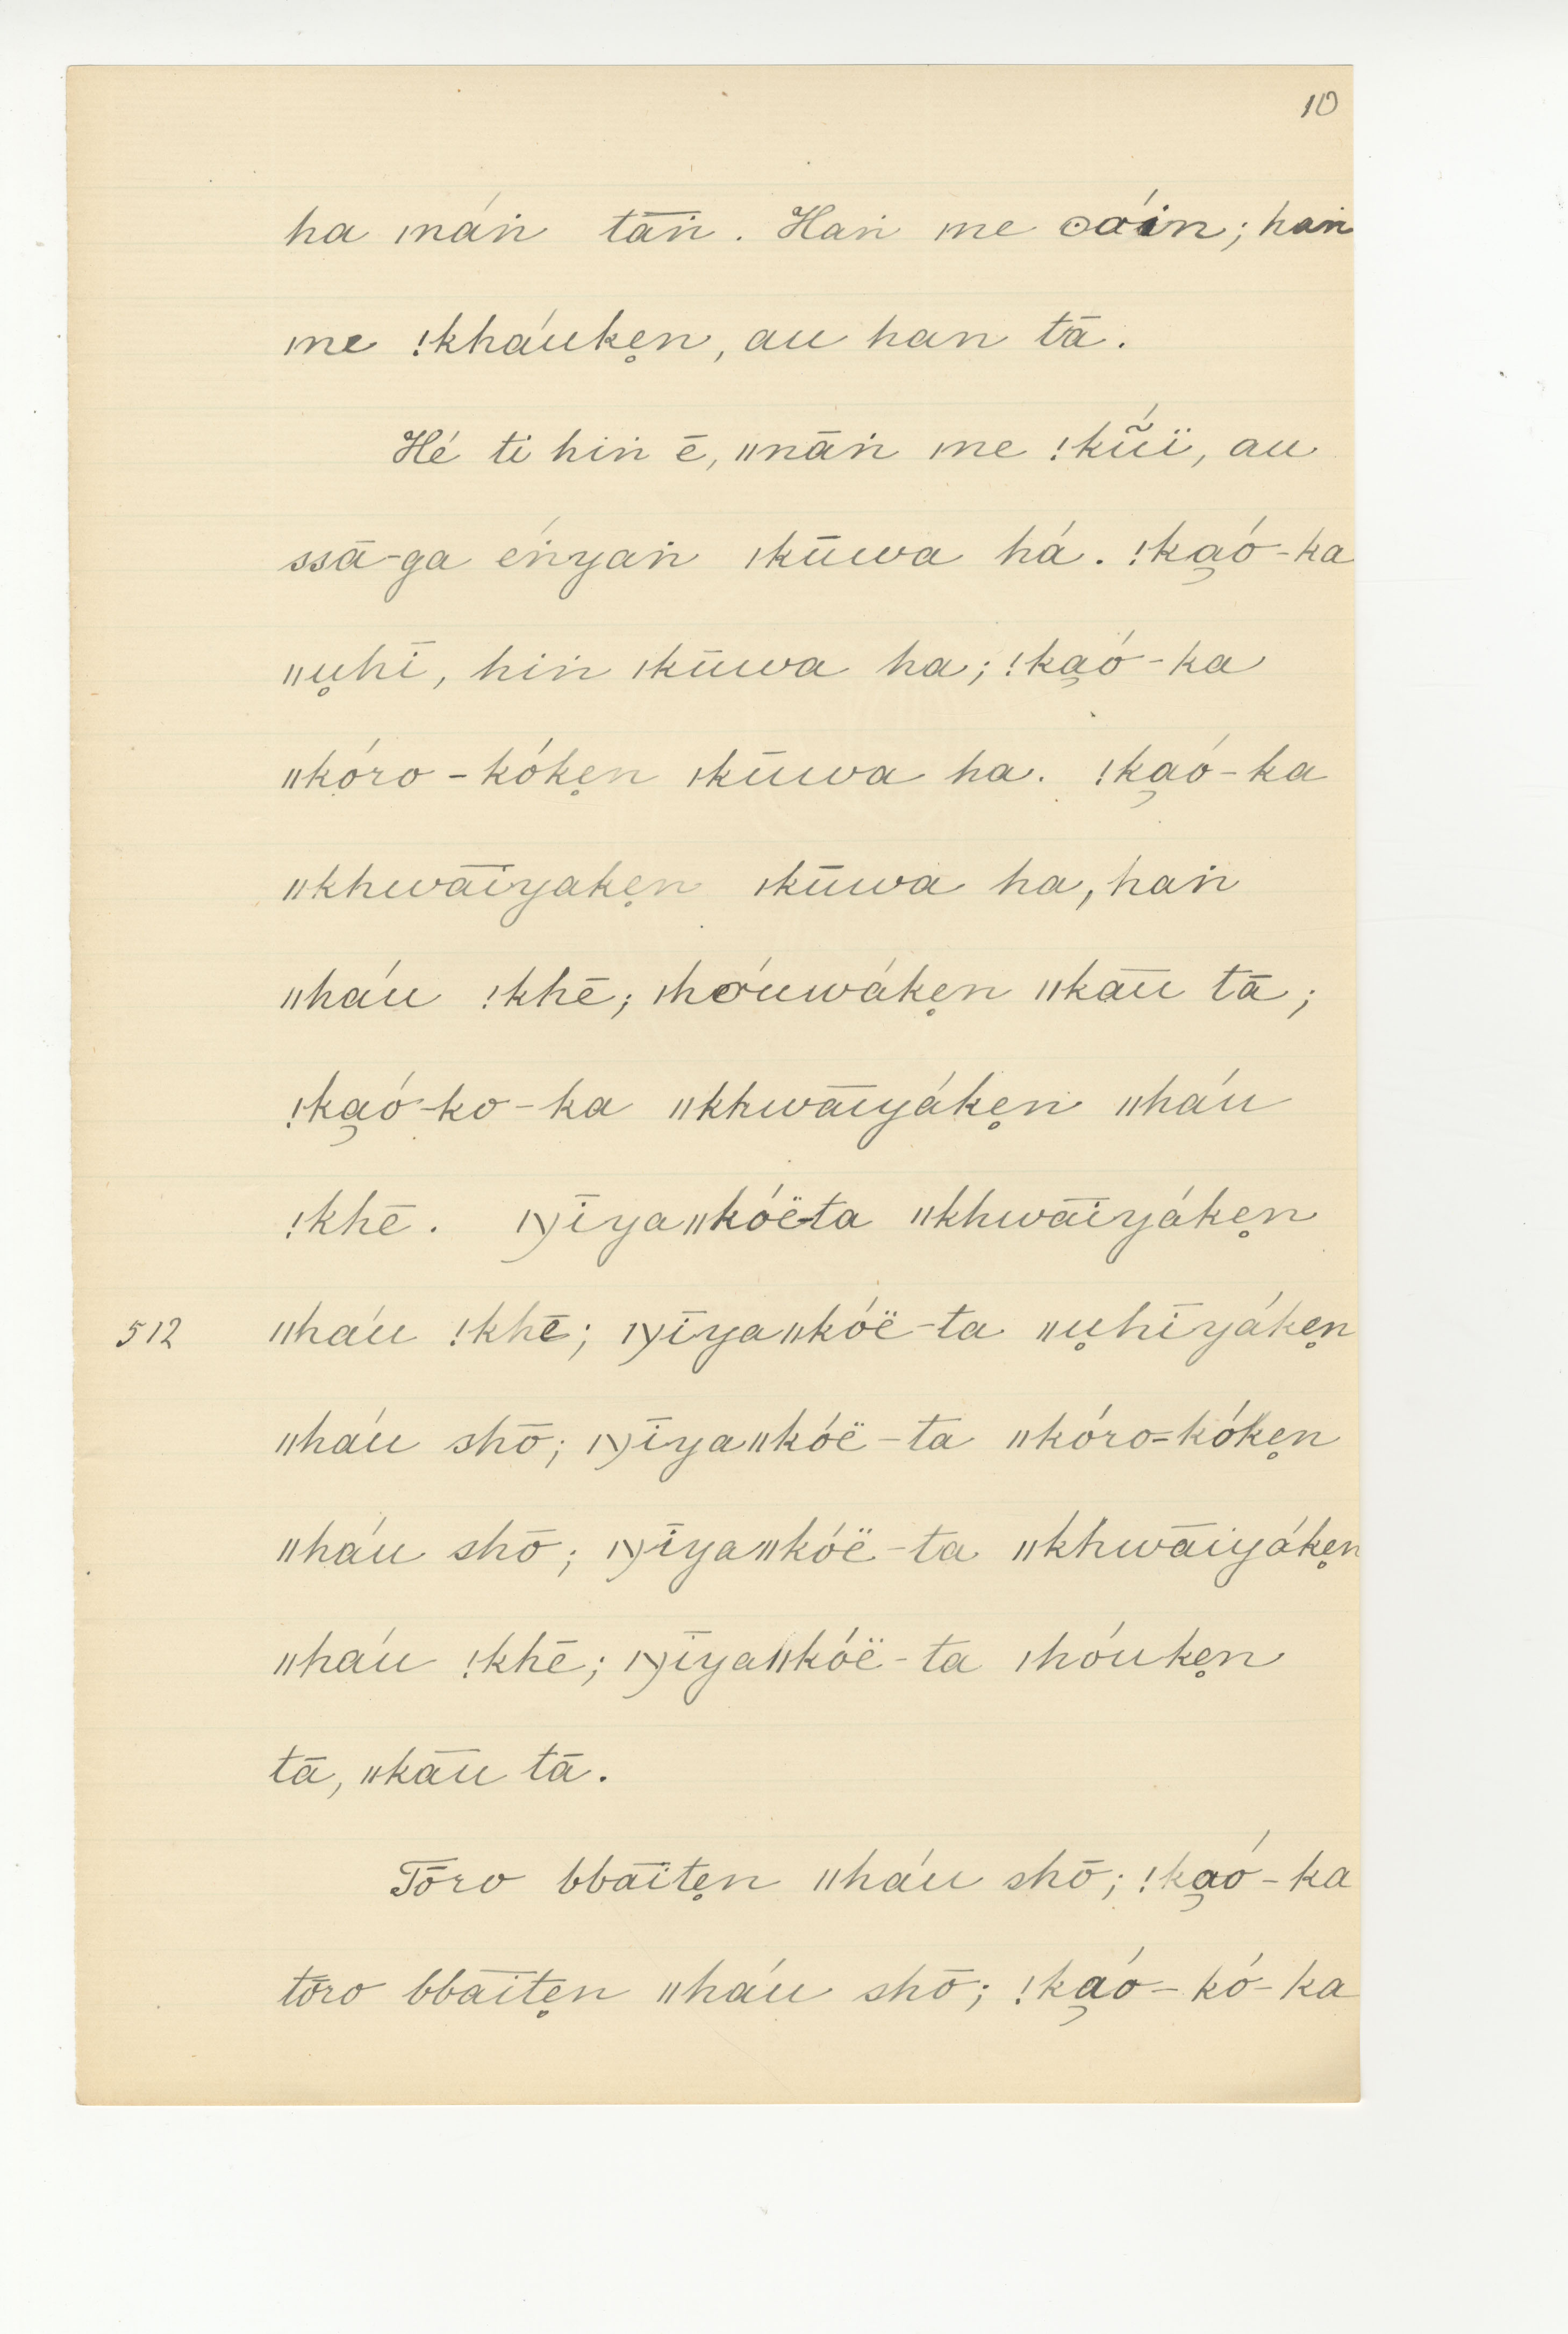 10
ha ǀnáṅ tāṅ. Haṅ ǀne ʘáiṅ; haṅ
ǀne !kháuke̥n, au han tā.
Hé ti hiṅ ē, ǁnāṅ ǀne !kũ̄́ï, au
ssā-ga éṅyaṅ ǀkūwa há. !ka̡ó-ka
ǁu̥hī, hiṅ ǀkūwa ha; !ka̡ó-ka
ǁkóro-kóke̥n ǀkūwa ha. !ka̡ó-ka
ǁkhwāīyake̥n ǀkūwa ha, haṅ
ǁháu !khē; ǀhóuwáke̥n ǁkāū tā;
!ka̡ó-ko-ka ǁkhwāīyáke̥n ǁháu
!khē. ǀχīyaǁkóë-ta ǁkhwāīyáke̥n
512 ǁháu !khē; ǀχīyaǁkóë-ta ǁu̥hīyáke̥n
ǁháu shō; ǀχīyaǁkóë-ta ǁkóro=kóke̥n
ǁháu shō; ǀχīyaǁkóë-ta ǁkhwāiyáke̥n
ǁháu !khē; ǀχīyaǁkóë-ta ǀhóuke̥n
tā, ǁkāū tā.
Tōro bbāīte̥n ǁháu shō; !ka̡ó-ka
tōro bbāīte̥n ǁháu shō; !ka̡ó-kó-ka